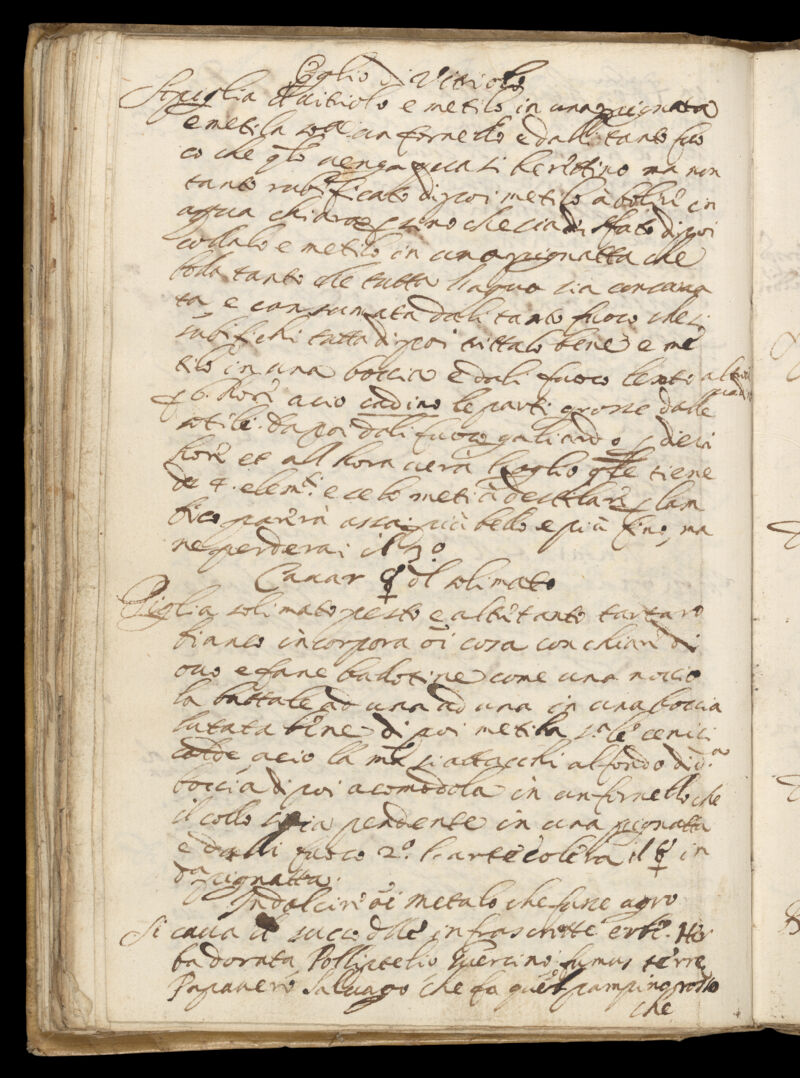 Oglio di Vitriolo
Si piglia il vitriolo e metilo in una pignata
e metila so[pra] un fornello e dalli tanto fuo
co che q̃lo venga quasi beretino ma non
tanto rubificato di poi metilo a bolire in
aqua chiara e p sino che sia disfato di poi
collalo e metilo in una pignatta che
bolla tanto che tutta l'aqua sia consuma
ta e consumata dali tanto fuoco che si
rubifichi tutta di poi trittalo bene e me
tilo in una boccia e dali fuoco lento
p 6 hore acio cadino le parti grosse dalle
sotile. da poi dali fuoco galiardo p dieci
hore et all hora uera l'oglio q̃le tiene
de 4 elem.ti e se lo meti a destilare p lam
bico parerà assai più bello e più fino, ma
ne perderai il 3º
Cavar ☿ dl solimato
Piglia solimato pesto e altretanto tartaro
bianco incorpora õi cosa con chiare di
ovo e fane ballotine come una nocio
la buttale ad una ad una in una boccia
lutata bene di poi metila so le cenici
calde, acio la mã si attacchi al fondo di d.ª
boccia di poi acomodola in un fornello che
il collo stia pendente in una pignatta
e dalli fuoco 2º l'arte e colera il ☿ in
da pignatta.
Indolcire õi metalo che fuse agro
Si cava il succo dlle infrascritte erbe. Her
ba dorata Pollipselio Guercino fumus terre
Papavero Salvago che fa quel pampino rosso
che